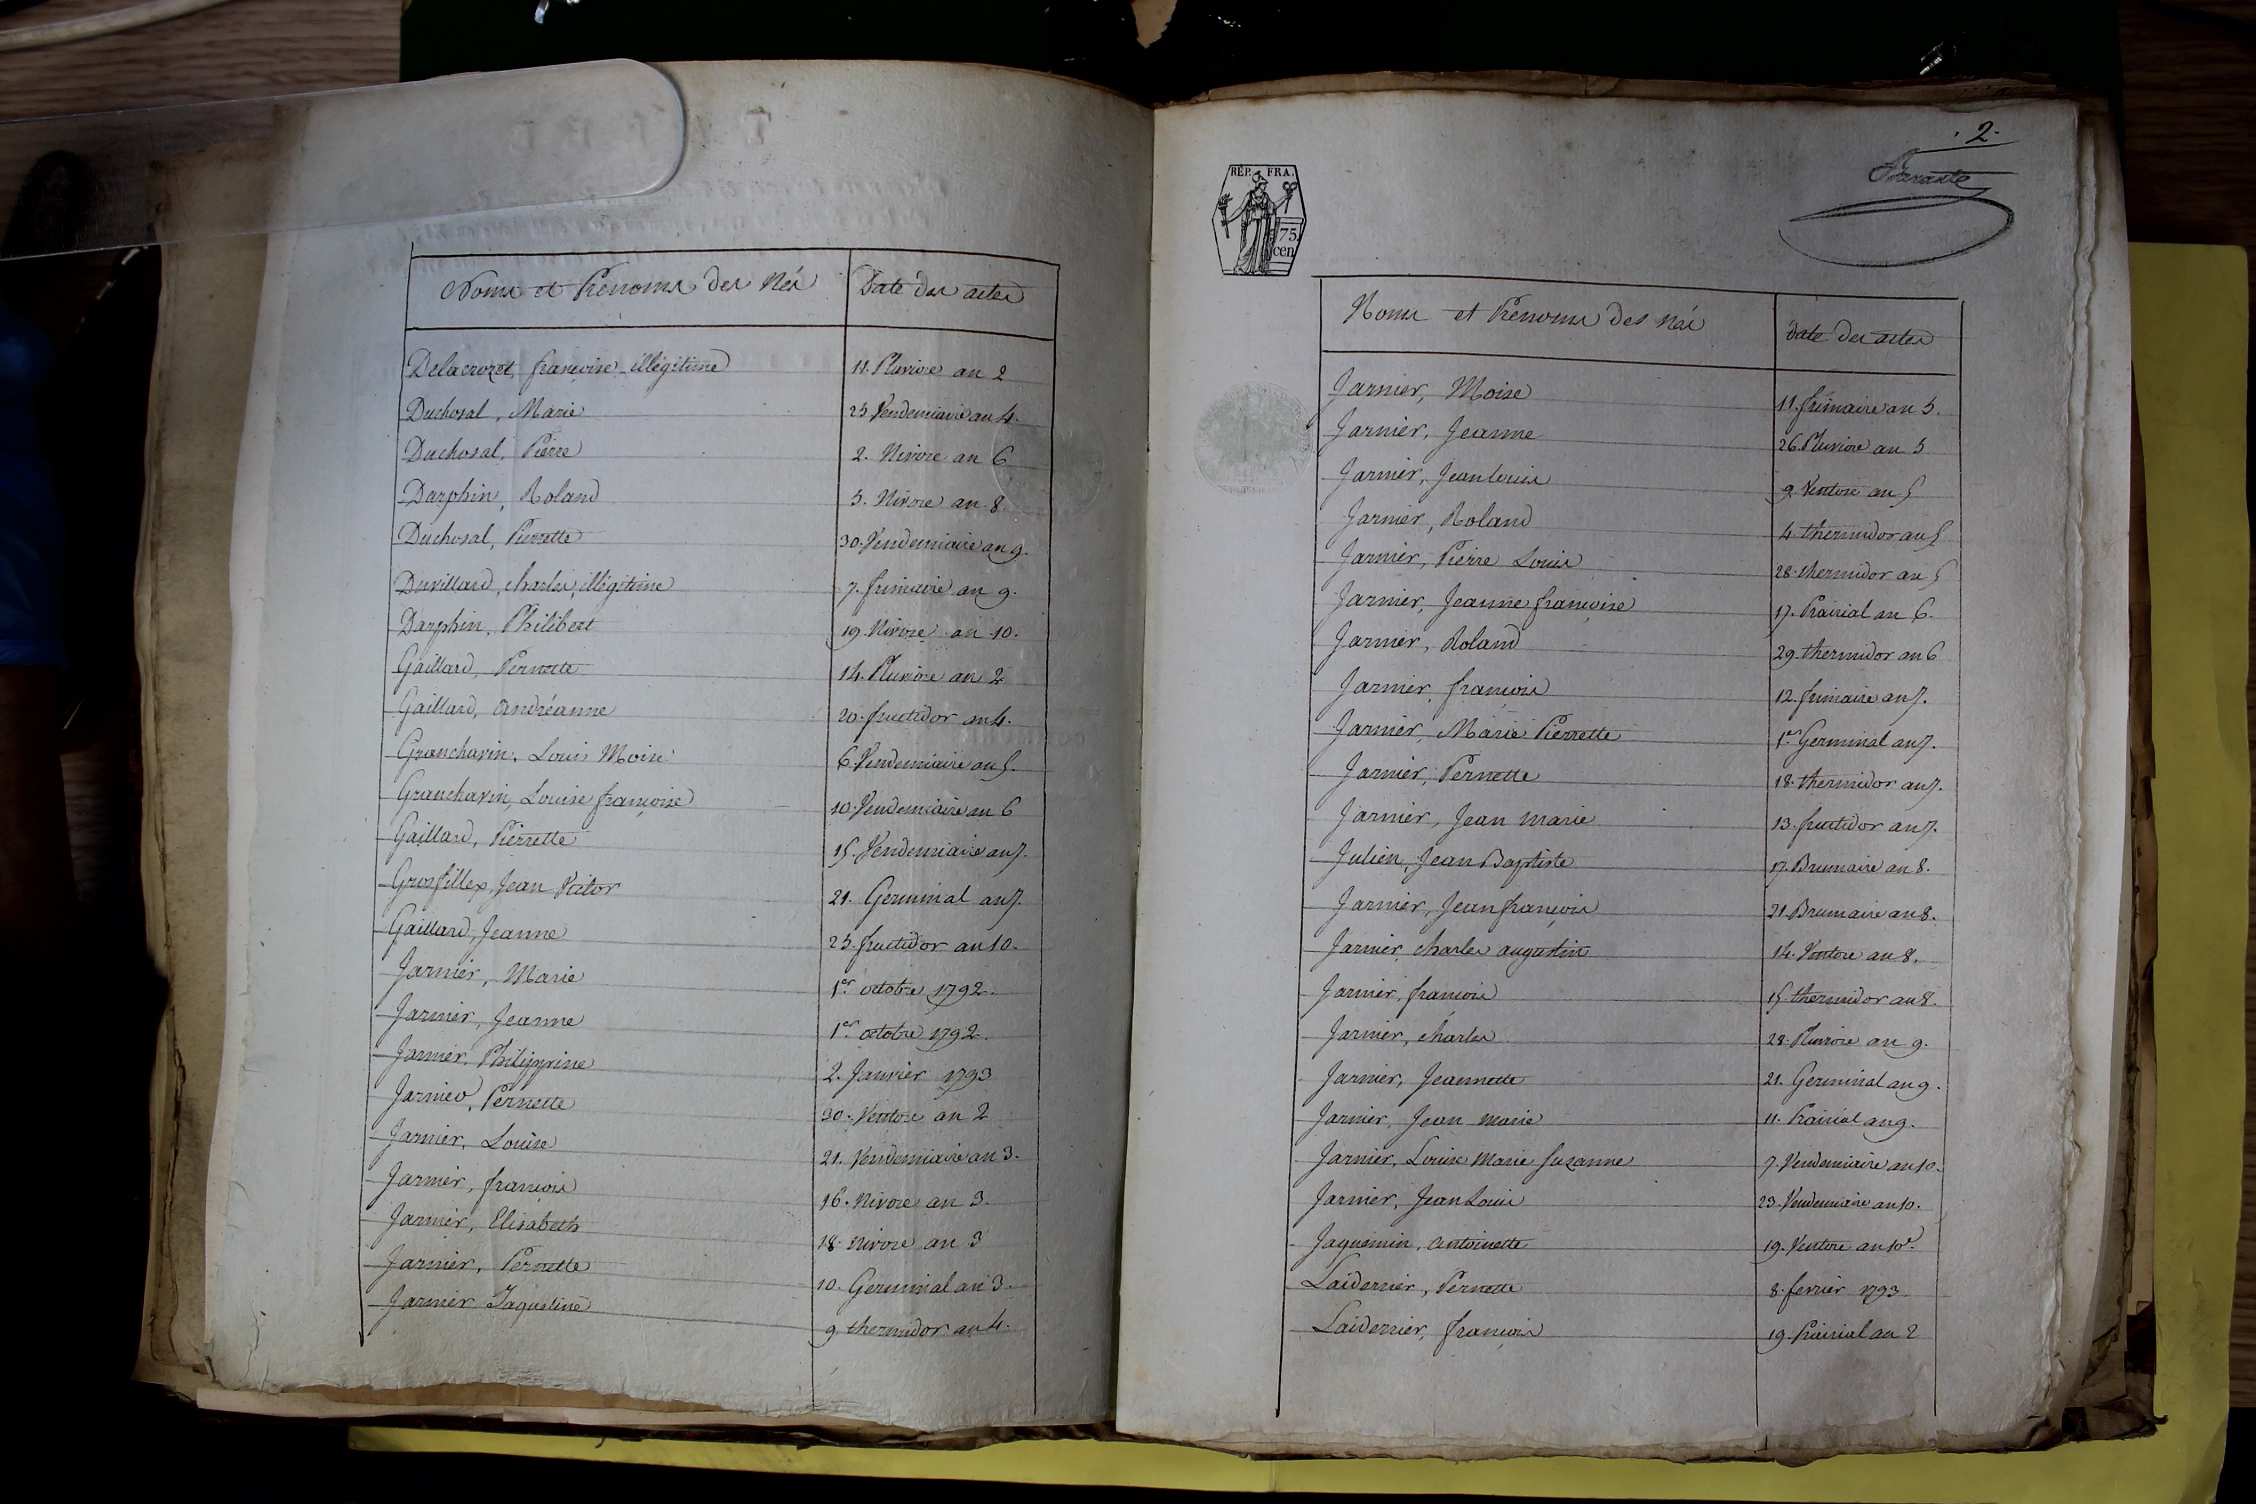 Noms et Prénoms des Nés Date des actes
Delacrozet, françoise illégitime 11. Pluviose an 2
Duchosal, Marie 23 Vendemiaire an 4.
Duchosal, Pierre 2. Nivose an 6
Darphin, Roland 3. Nivose an 8
Duchosal, Pierrette 30. Vendemiaire an 9.
Duvillard, charles, illégitime 7. frimaire an 9.
Darphin, Philibert 19. Nivose an 10.
Gaillard, Pernette 14. Pluviose an 2
Gaillard, andréanne 20. fructidor an 4.
Granchavin, Louis Moise 6 Vendemiaire an 5.
Granchavin, Louise françoise 10. Vendemiaire an 6
Gaillard, Pierrette 15. Vendemiaire an 7.
Grosfillex, Jean Victor 21. Germinal an 7.
Gaillard, Jeanne 23. fructidor an 10.
Jarnier, Marie 1er octobre 1792.
Jarnier, Jeanne 1er octobre 1792.
Jarnier, Philippine 2. Janvier 1793
Jarnier, Pernette 30. Ventose an 2
Jarnier, Louise 21. Vendemiaire an 3.
Jarnier, françois 16. Nivose an 3.
Jarnier, Elisabeth 18. nivose an 3
Jarnier, Pernette 10. Germinal an 3.
Jarnier Jaqueline 9 thermidor an 4.
2.
RÉP. FRA.
75
cen
Noms et Prénoms des Nés Date des actes
Jarnier, Moise 11. frimaire an 5.
Jarnier, Jeanne 26. Pluviose an 5
Jarnier, Jean Louis 9. Ventose an 5
Jarnier, Roland 4. thermidor an 5
Jarnier, Pierre Louis 28. thermidor an 5
Jarnier, Jeanne françoise 17. Prairial an 6.
Jarnier, Roland 29. thermidor an 6
Jarnier, françois 12. frimaire an 7.
Jarnier, Marie Pierrette 1er Germinal an 7.
Jarnier, Pernette 18. thermidor an 7.
Jarnier, Jean marie 13. fructidor an 7.
Julien, Jean Baptiste 17. Brumaire an 8.
Jarnier, Jean françois 21. Brumaire an 8.
Jarnier, charles augustin 14. Ventose an 8.
Jarnier, françois 15. thermidor an 8.
Jarnier, charles 28. Pluviose an 9.
Jarnier, Jeannette 21. Germinal an 9.
Jarnier, Jean marie 11. Prairial an 9.
Jarnier, Louise Marie Suzanne 7. Vendemiaire an 10.
Jarnier, Jean Louis 23. Vendemiaire an 10.
Jaquemin, antoinette 19. Ventose an 10e.
Laidernier, Pernette 8. fevrier 1793
Laidernier, françois 19. Prairial an 2